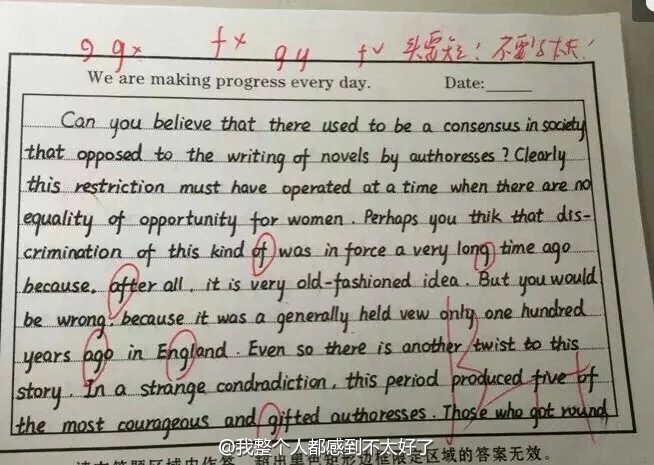 g g× f× g y f√ 头要短！不要写太大！
We are making progress every day. Date:
Can you believe that there used to be a consensus in society
that opposed to the writing of novels by authoresses ? Clearly
this restriction must have operated at a time when there are no
equality of opportunity for women . Perhaps you thik that dis-
crimination of this kind of was in force a very long time ago
because. after all , it is very old-fashioned idea . But you would
be wrong. because it was a generally held vew only one hundred
years ago in England . Even so there is another twist to this
story . In a strange condradiction , this period produced five of
the most courageous and gifted authoresses . Those who got round
@我整个人都感到不太好了
请在答题区域内作答，超出黑色矩形边框限定区域的答案无效。